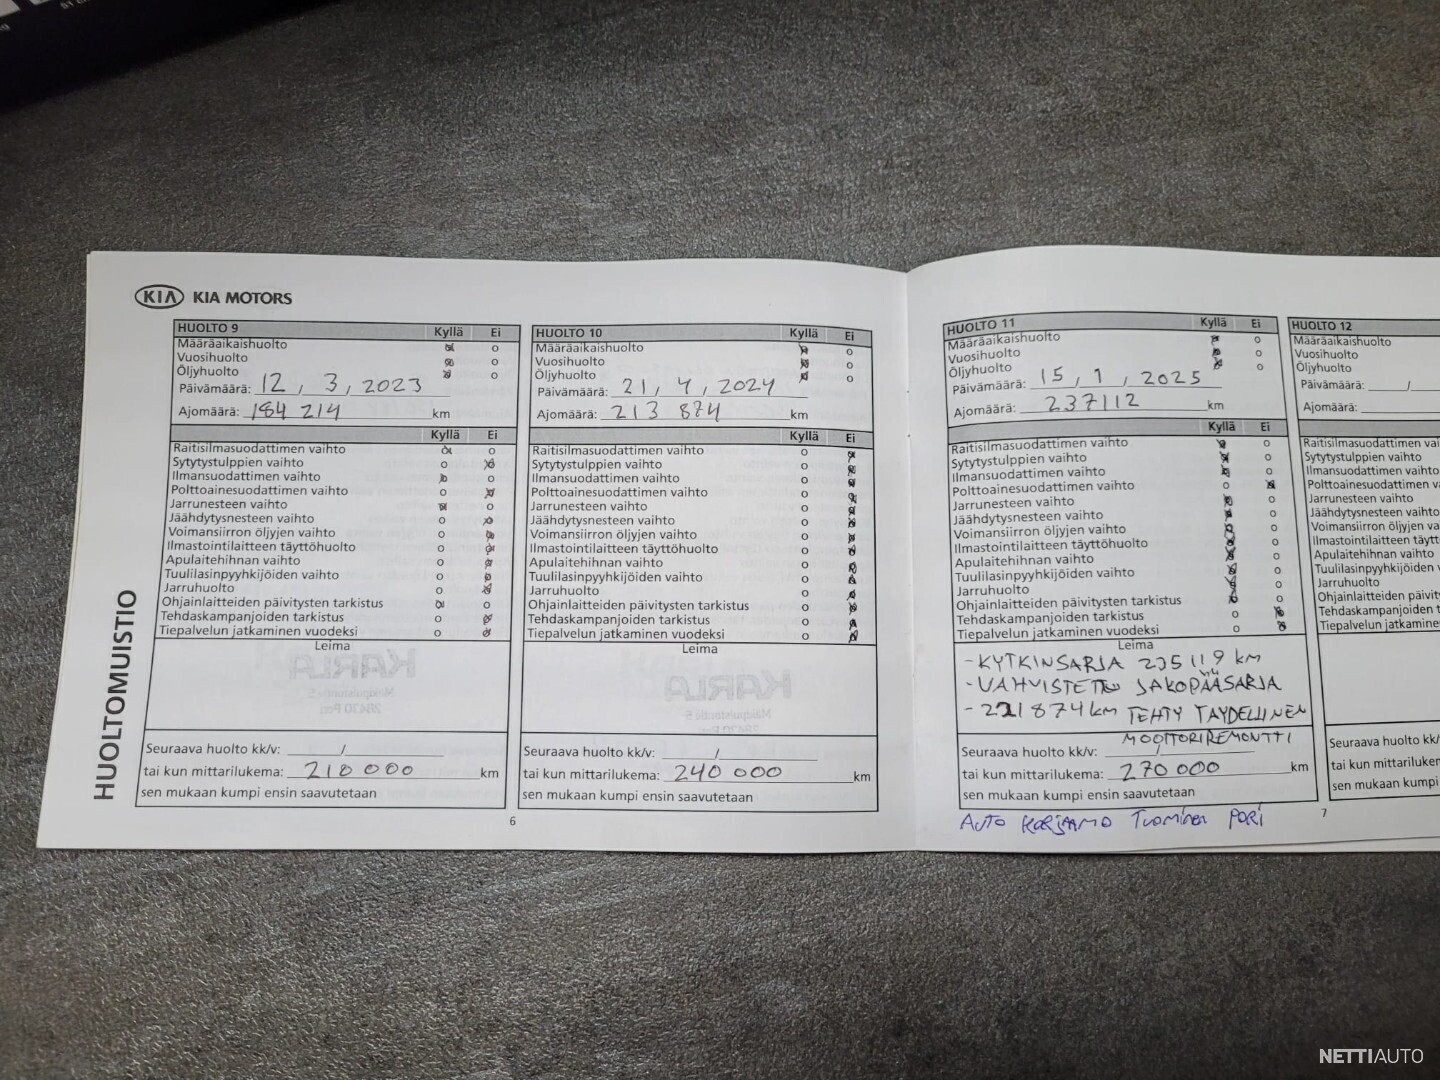 KIA KIA MOTORS
HUOLTOMUISTIO
HUOLTO 9 Kyllä Ei
Määräaikaishuolto o o
Vuosihuolto o o
Öljyhuolto o o
Päivämäärä: 12, 3, 2023
Ajomäärä: 184 214 km
Kyllä Ei
Raitisilmasuodattimen vaihto o o
Sytytystulppien vaihto o o
Ilmansuodattimen vaihto o o
Polttoainesuodattimen vaihto o o
Jarrunesteen vaihto o o
Jäähdytysnesteen vaihto o o
Voimansiirron öljyjen vaihto o o
Ilmastointilaitteen täyttöhuolto o o
Apulaitehihnan vaihto o o
Tuulilasinpyyhkijöiden vaihto o o
Jarruhuolto o o
Ohjainlaitteiden päivitysten tarkistus o o
Tehdaskampanjoiden tarkistus o o
Tiepalvelun jatkaminen vuodeksi o o
Leima
Seuraava huolto kk/v: /
tai kun mittarilukema: 210 000 km
sen mukaan kumpi ensin saavutetaan
HUOLTO 10 Kyllä Ei
Määräaikaishuolto o o
Vuosihuolto o o
Öljyhuolto o o
Päivämäärä: 21, 4, 2024
Ajomäärä: 213 874 km
Kyllä Ei
Raitisilmasuodattimen vaihto o o
Sytytystulppien vaihto o o
Ilmansuodattimen vaihto o o
Polttoainesuodattimen vaihto o o
Jarrunesteen vaihto o o
Jäähdytysnesteen vaihto o o
Voimansiirron öljyjen vaihto o o
Ilmastointilaitteen täyttöhuolto o o
Apulaitehihnan vaihto o o
Tuulilasinpyyhkijöiden vaihto o o
Jarruhuolto o o
Ohjainlaitteiden päivitysten tarkistus o o
Tehdaskampanjoiden tarkistus o o
Tiepalvelun jatkaminen vuodeksi o o
Leima
Seuraava huolto kk/v: /
tai kun mittarilukema: 240 000 km
sen mukaan kumpi ensin saavutetaan
6
HUOLTO 11 Kyllä Ei
Määräaikaishuolto o o
Vuosihuolto o o
Öljyhuolto o o
Päivämäärä: 15, 1, 2025
Ajomäärä: 237112 km
Kyllä Ei
Raitisilmasuodattimen vaihto o o
Sytytystulppien vaihto o o
Ilmansuodattimen vaihto o o
Polttoainesuodattimen vaihto o o
Jarrunesteen vaihto o o
Jäähdytysnesteen vaihto o o
Voimansiirron öljyjen vaihto o o
Ilmastointilaitteen täyttöhuolto o o
Apulaitehihnan vaihto o o
Tuulilasinpyyhkijöiden vaihto o o
Jarruhuolto o o
Ohjainlaitteiden päivitysten tarkistus o o
Tehdaskampanjoiden tarkistus o o
Tiepalvelun jatkaminen vuodeksi o o
Leima
- KYTKINSARJA 235119 km
- VAHVISTETTU JAKOPÄÄSARJA
- 221874 km TEHTY TÄYDELLINEN
MOOTTORIREMONTTI
Seuraava huolto kk/v: /
tai kun mittarilukema: 270 000 km
sen mukaan kumpi ensin saavutetaan
AUTO KORJAAMO TUOMINEN PORI
7
HUOLTO 12
Määräaikaishuolto
Vuosihuolto
Öljyhuolto
Päivämäärä: /
Ajomäärä:
Raitisilmasuodattimen vai
Sytytystulppien vaihto
Ilmansuodattimen vaihto
Polttoainesuodattimen va
Jarrunesteen vaihto
Jäähdytysnesteen vaihto
Voimansiirron öljyjen vaih
Ilmastointilaitteen täytt
Apulaitehihnan vaihto
Tuulilasinpyyhkijöiden v
Jarruhuolto
Ohjainlaitteiden päivitys
Tehdaskampanjoiden ta
Tiepalvelun jatkaminen
Seuraava huolto kk/v:
tai kun mittarilukema:
sen mukaan kumpi ens
NETTIAUTO